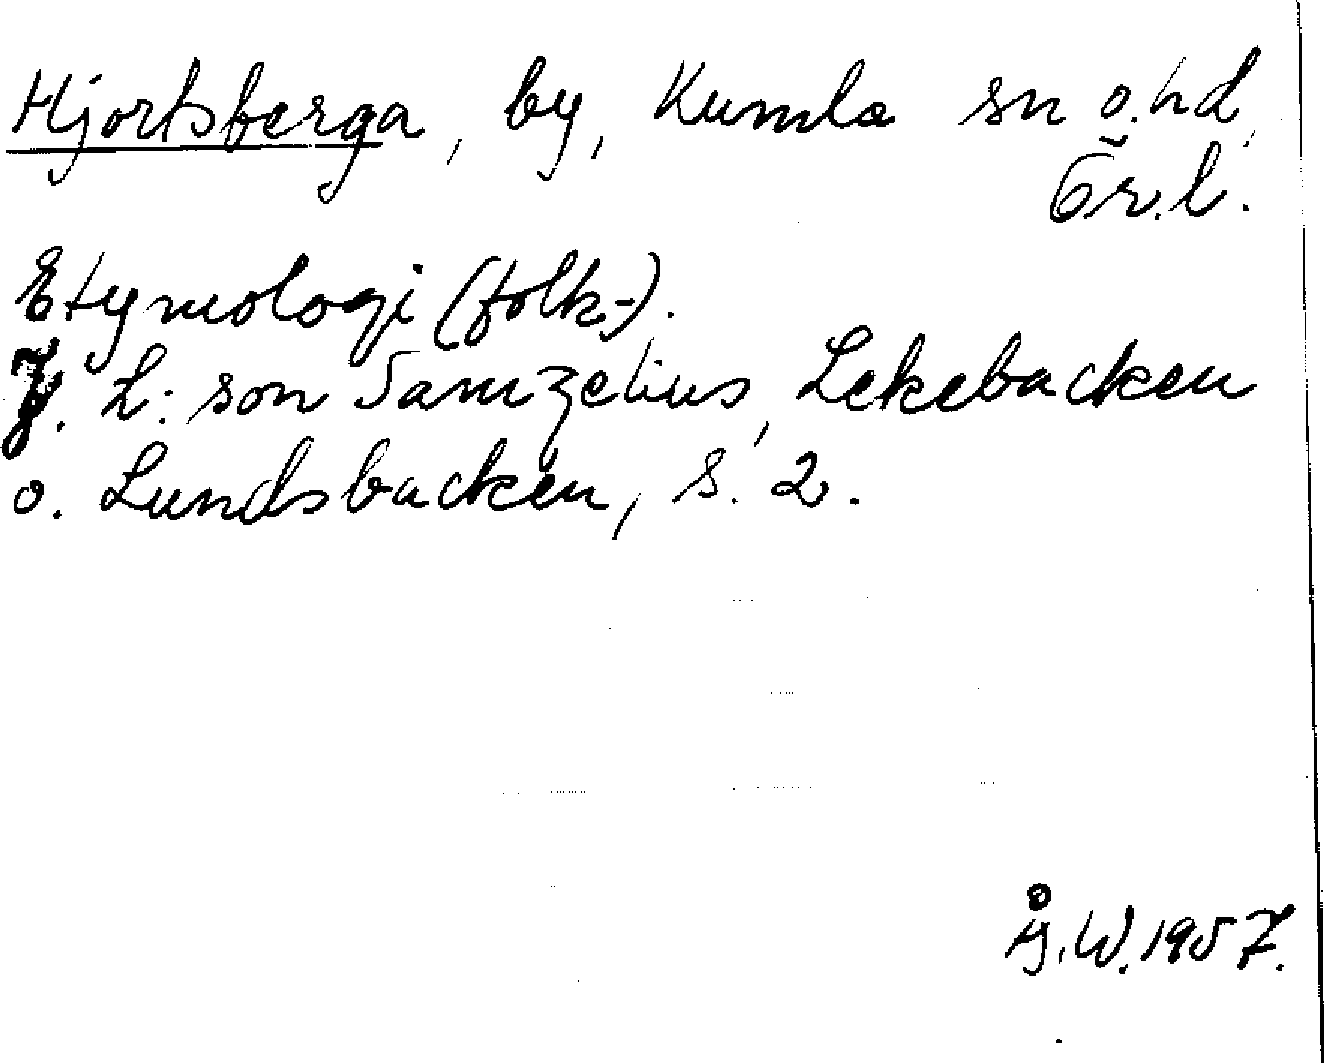 Hjortsberga, by, Kumla sn o. hd,
Ör. l.
Etymologi (folk-).
J. L:son Samzelius, Lekebacken
o. Lundsbacken, s. 2.
Å. W. 1957.